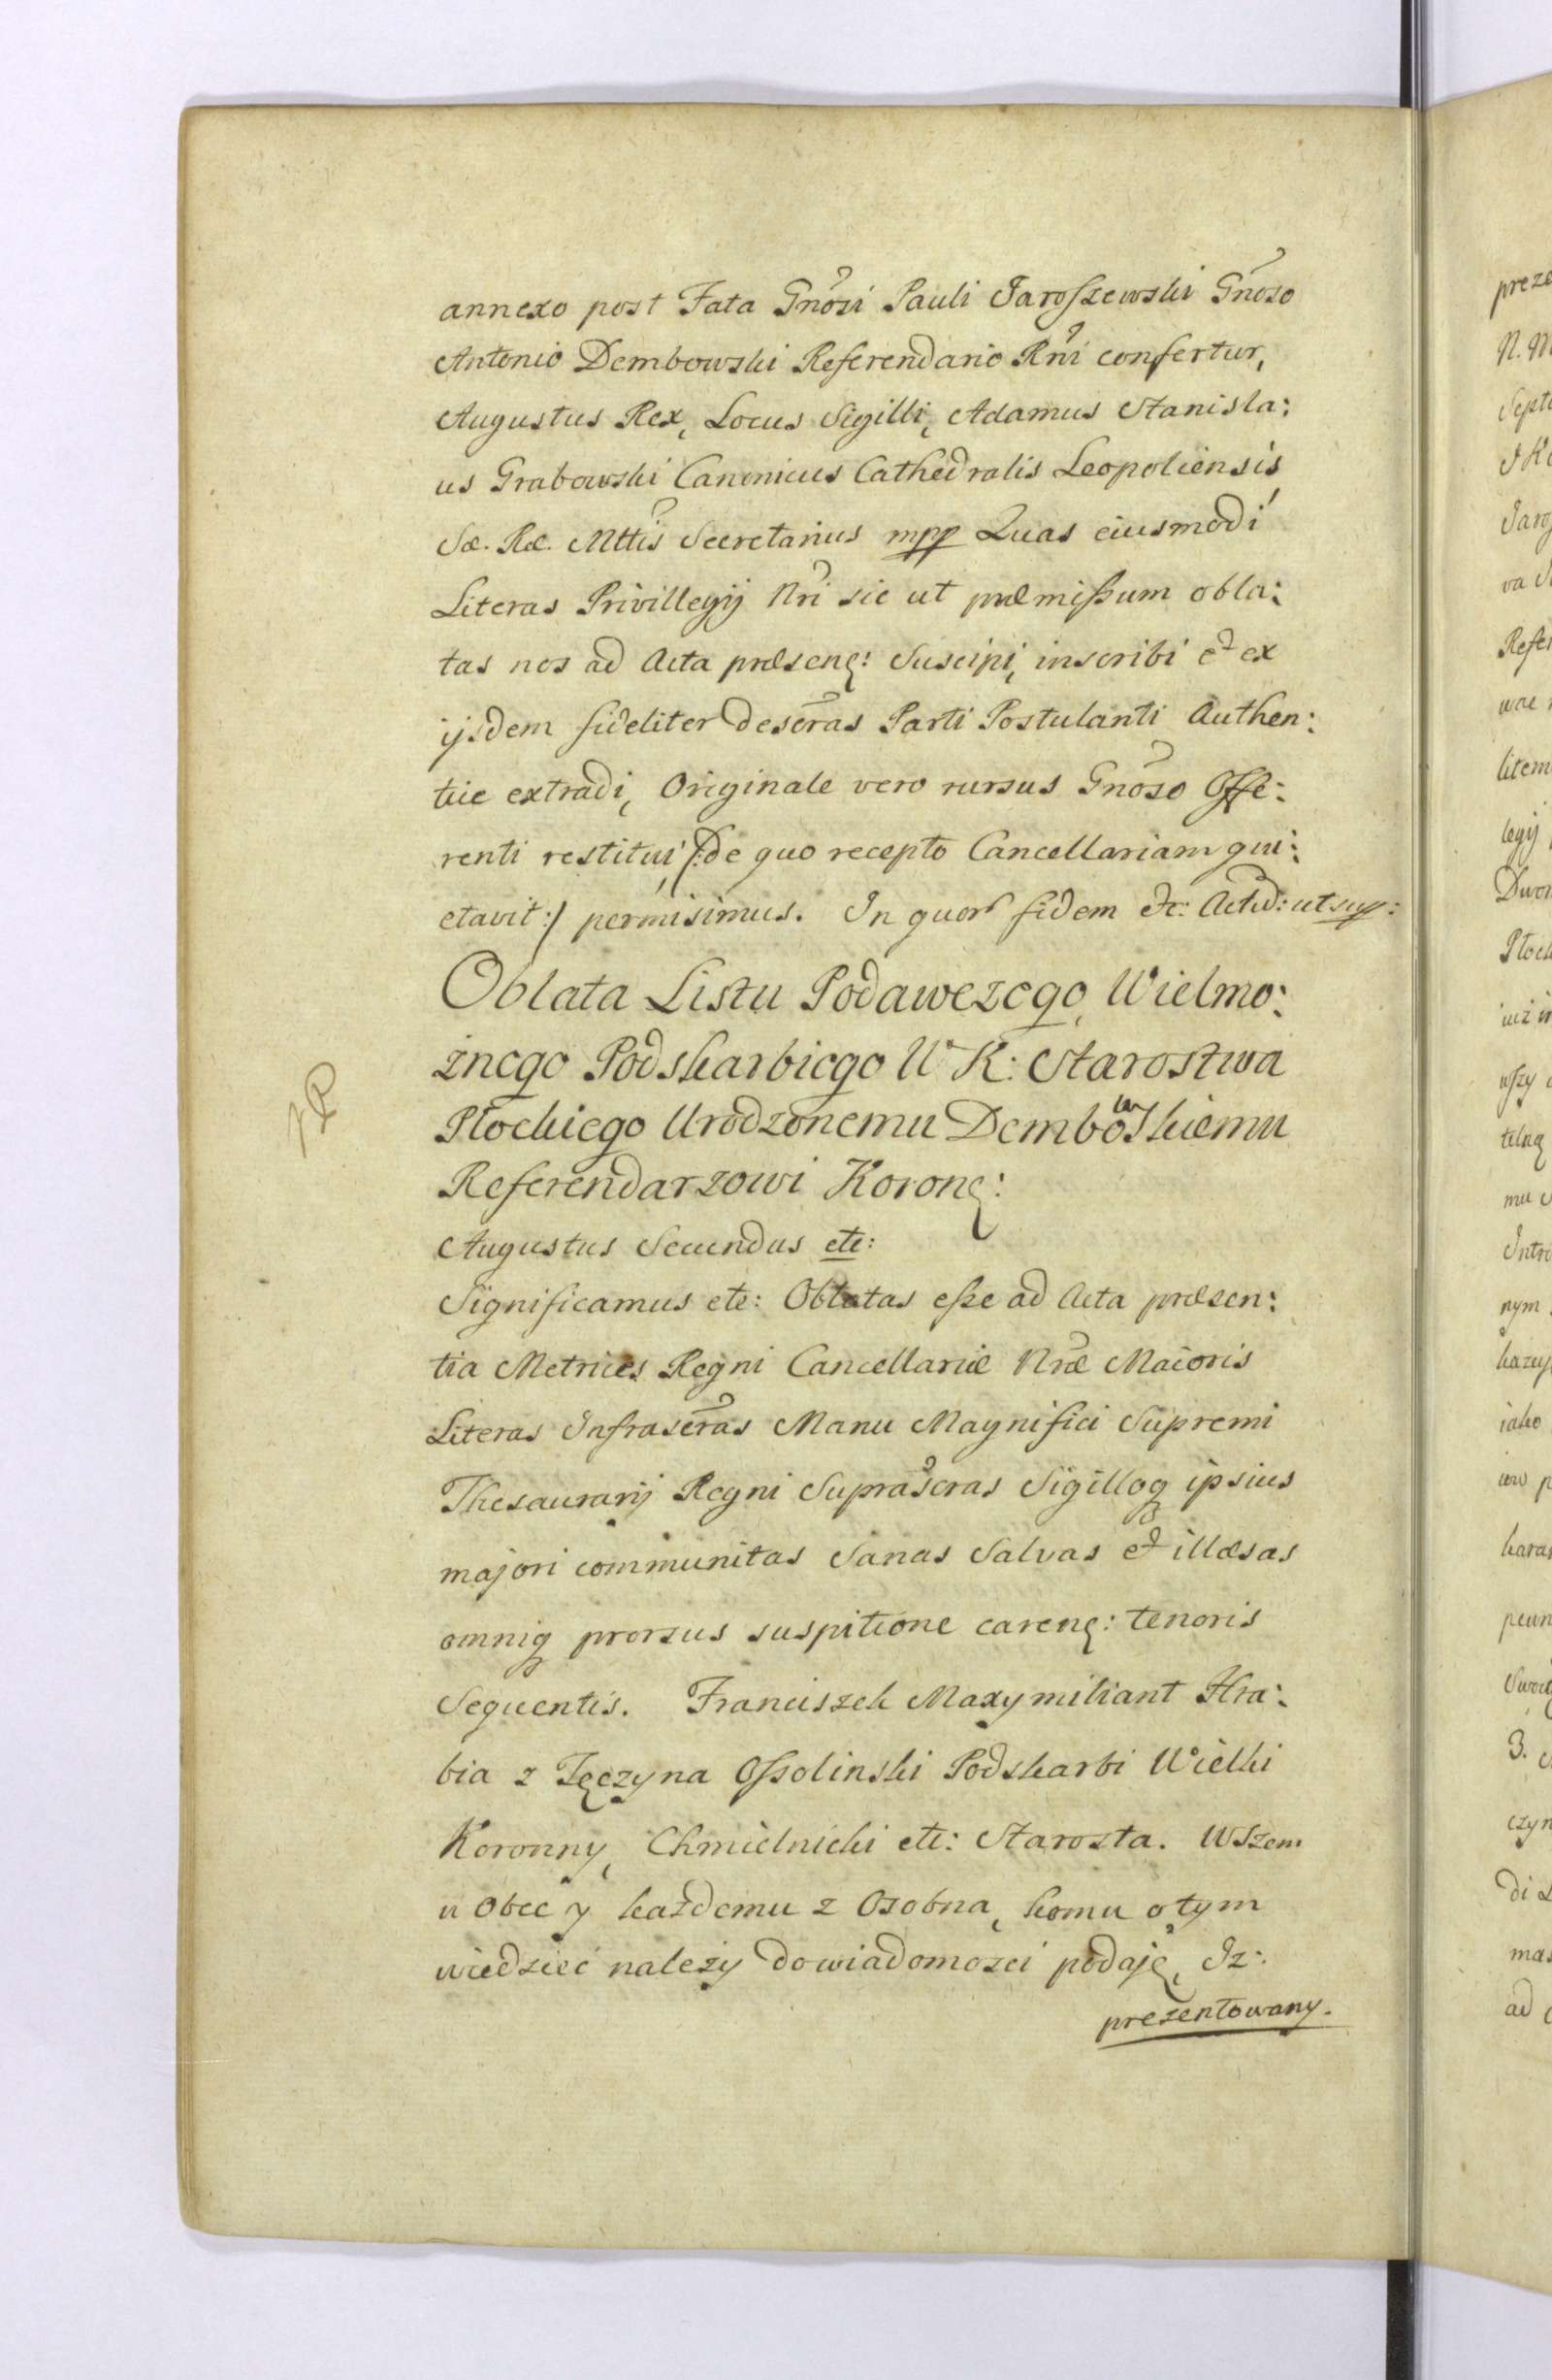 annexo post Fata Gnosi Pauli Jaroszewski Gnoso
Antonio Dembowski Referendario Rni confertur,
Augustus Rex, Locus Sigilli, Adamus Stanisla:
us Grabowski Canonicus Cathedralis Leopoliensis
Sæ. Ræ. Mttis Secretarius mpp Quas eiusmodi
Literas Privillegij Nri sic ut præmissum obla:
tas nos ad Acta præsenę: Suscipi, inscribi et ex
ijsdem fideliter descras Parti Postulanti Authen:
tice extradi, Originale vero rursus Gnoso Offe:
renti restitui /:de quo recepto Cancellariam qui:
etavit:/ permisimus. In quor fidem &c: Actū: ut sup:
Oblata Listu Podawczego, Wielmo:
żnego Podskarbiego W K: Starostwa
Płockiego Urodzonemu Dembowskiemu
Referendarzowi Koronę:
Augustus Secundus etc:
Significamus etc: Oblatas esse ad Acta præsen:
tia Metrices Regni Cancellariæ Nræ Maioris
Literas Infrascras Manu Magnifici Supremi
Thesaurarij Regni Suprascras Sigilloq ipsius
majori communitas Sanas Salvas et illæsas
omniq prorsus suspitione carenę: tenoris
Sequentis. Franciszek Maxymiliant Hra:
bia z Tęczyna Ossolinski Podskarbi Wielki
Koronny, Chmielnicki etc: Starosta. Wszem
u Obec y każdemu z Osobna, komu o tym
wiedzieć należy do wiadomosci podaję, Iz:
prezentowany.